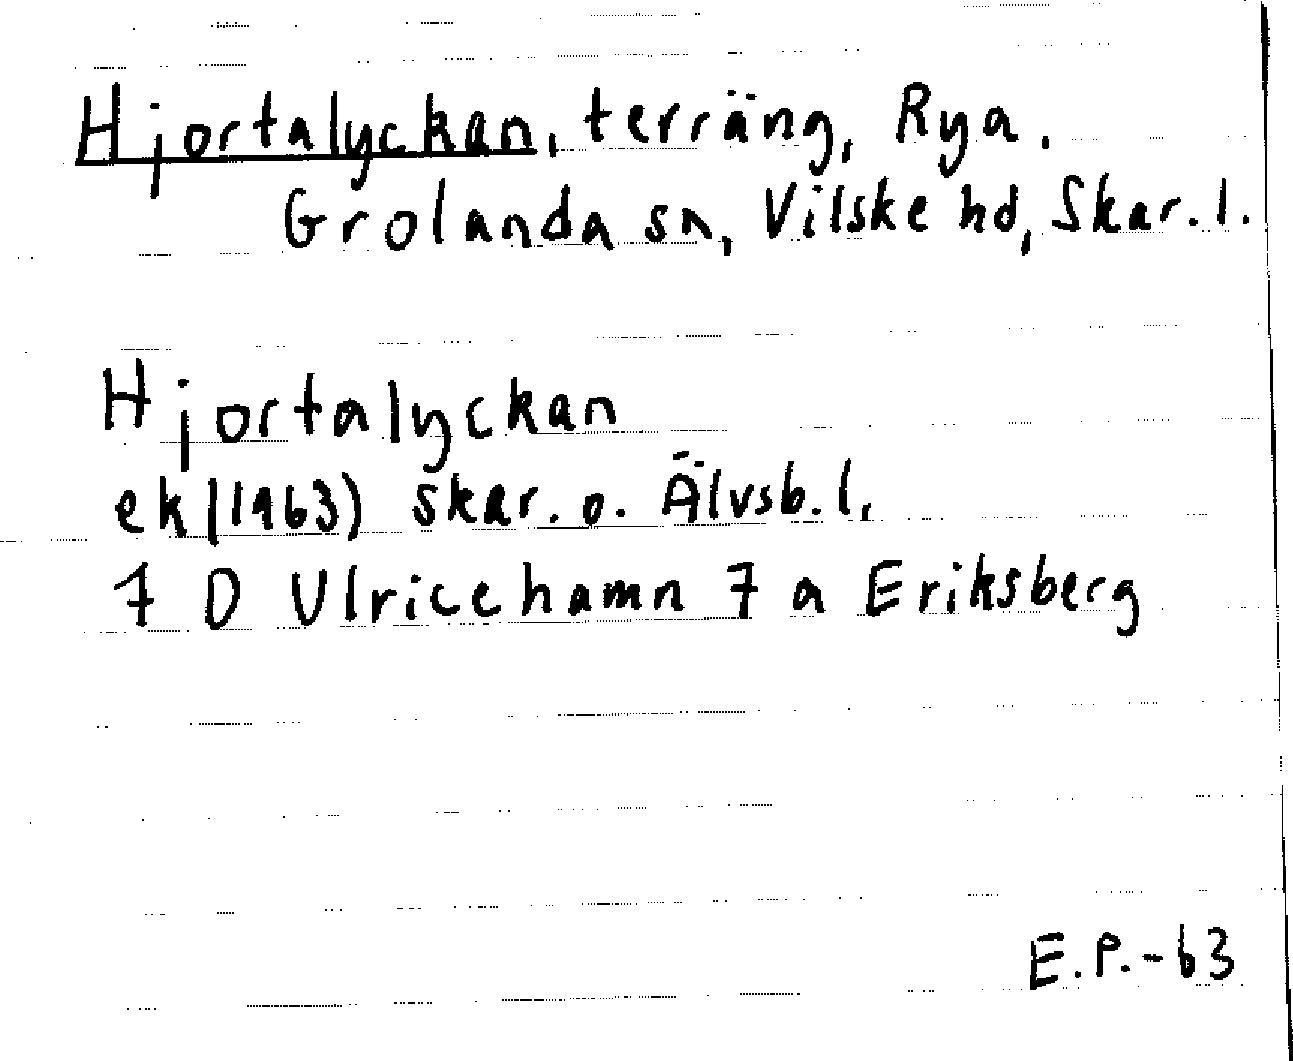 Hjortalyckan, terräng, Rya.
Grolanda sn, Vilske hd, Skar. l.
Hjortalyckan
ek (1963) Skar. o. Älvsb. l.
7 D Ulricehamn 7 a Eriksberg
E.P.-63